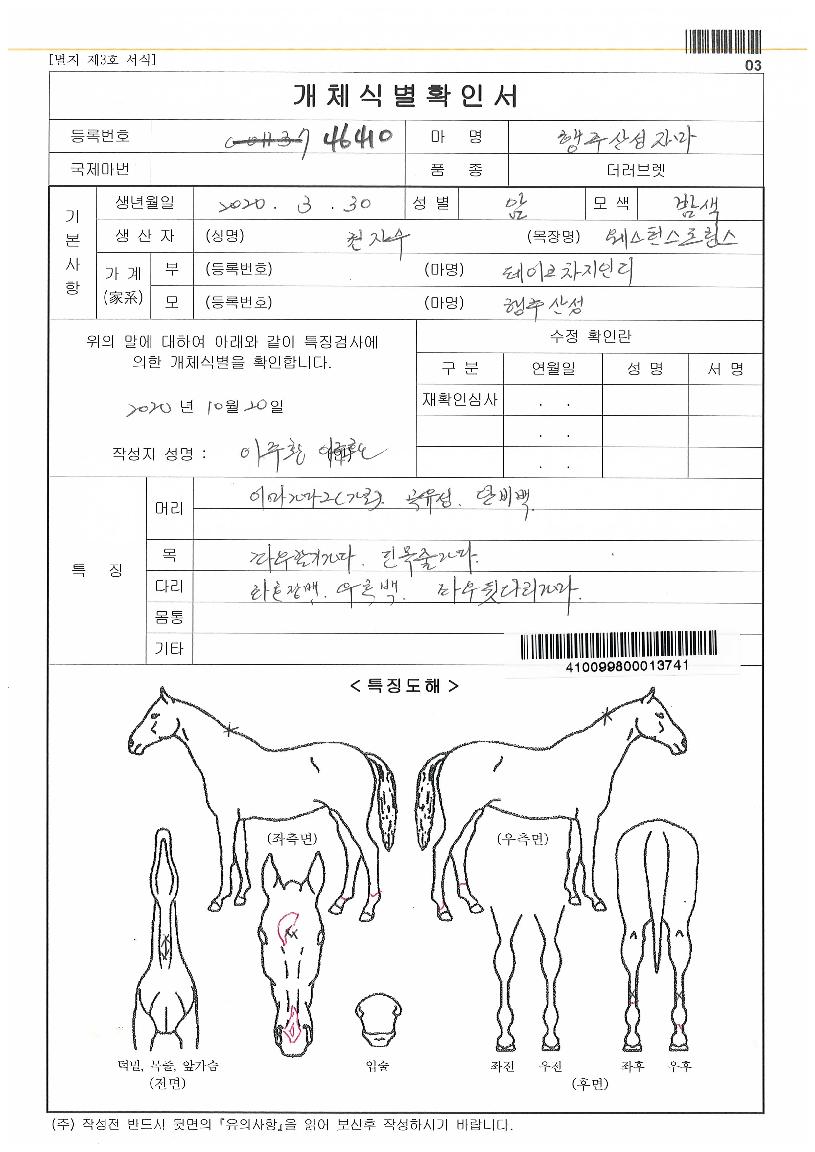 [별지 제3호 서식]
03
개체식별확인서
등록번호 46410 마 명 행주산성자마
국제마번 품 종 더러브렛
기본사항
생년월일 2020 . 3 . 30 성 별 암 모 색 밤색
생 산 자 (성명) (목장명)
가 계 (家系) 부 (등록번호) (마명) 테이크차지인디
모 (등록번호) (마명) 행주산성
위의 말에 대하여 아래와 같이 특징검사에
의한 개체식별을 확인합니다.
2020 년 10월 20일
작성자 성명 : 이주환
수정 확인란
구 분 연월일 성 명 서 명
재확인심사 . .
. .
. .
특 징
머리 유성. 단비백.
목
다리 좌우뒷다리가마.
몸통
기타
410099800013741
< 특징도해 >
(좌측면) (우측면)
턱밑, 목줄, 앞가슴
(전면)
입술
좌전 우전 좌후 우후
(후면)
(주) 작성전 반드시 뒷면의 『유의사항』을 읽어 보신후 작성하시기 바랍니다.